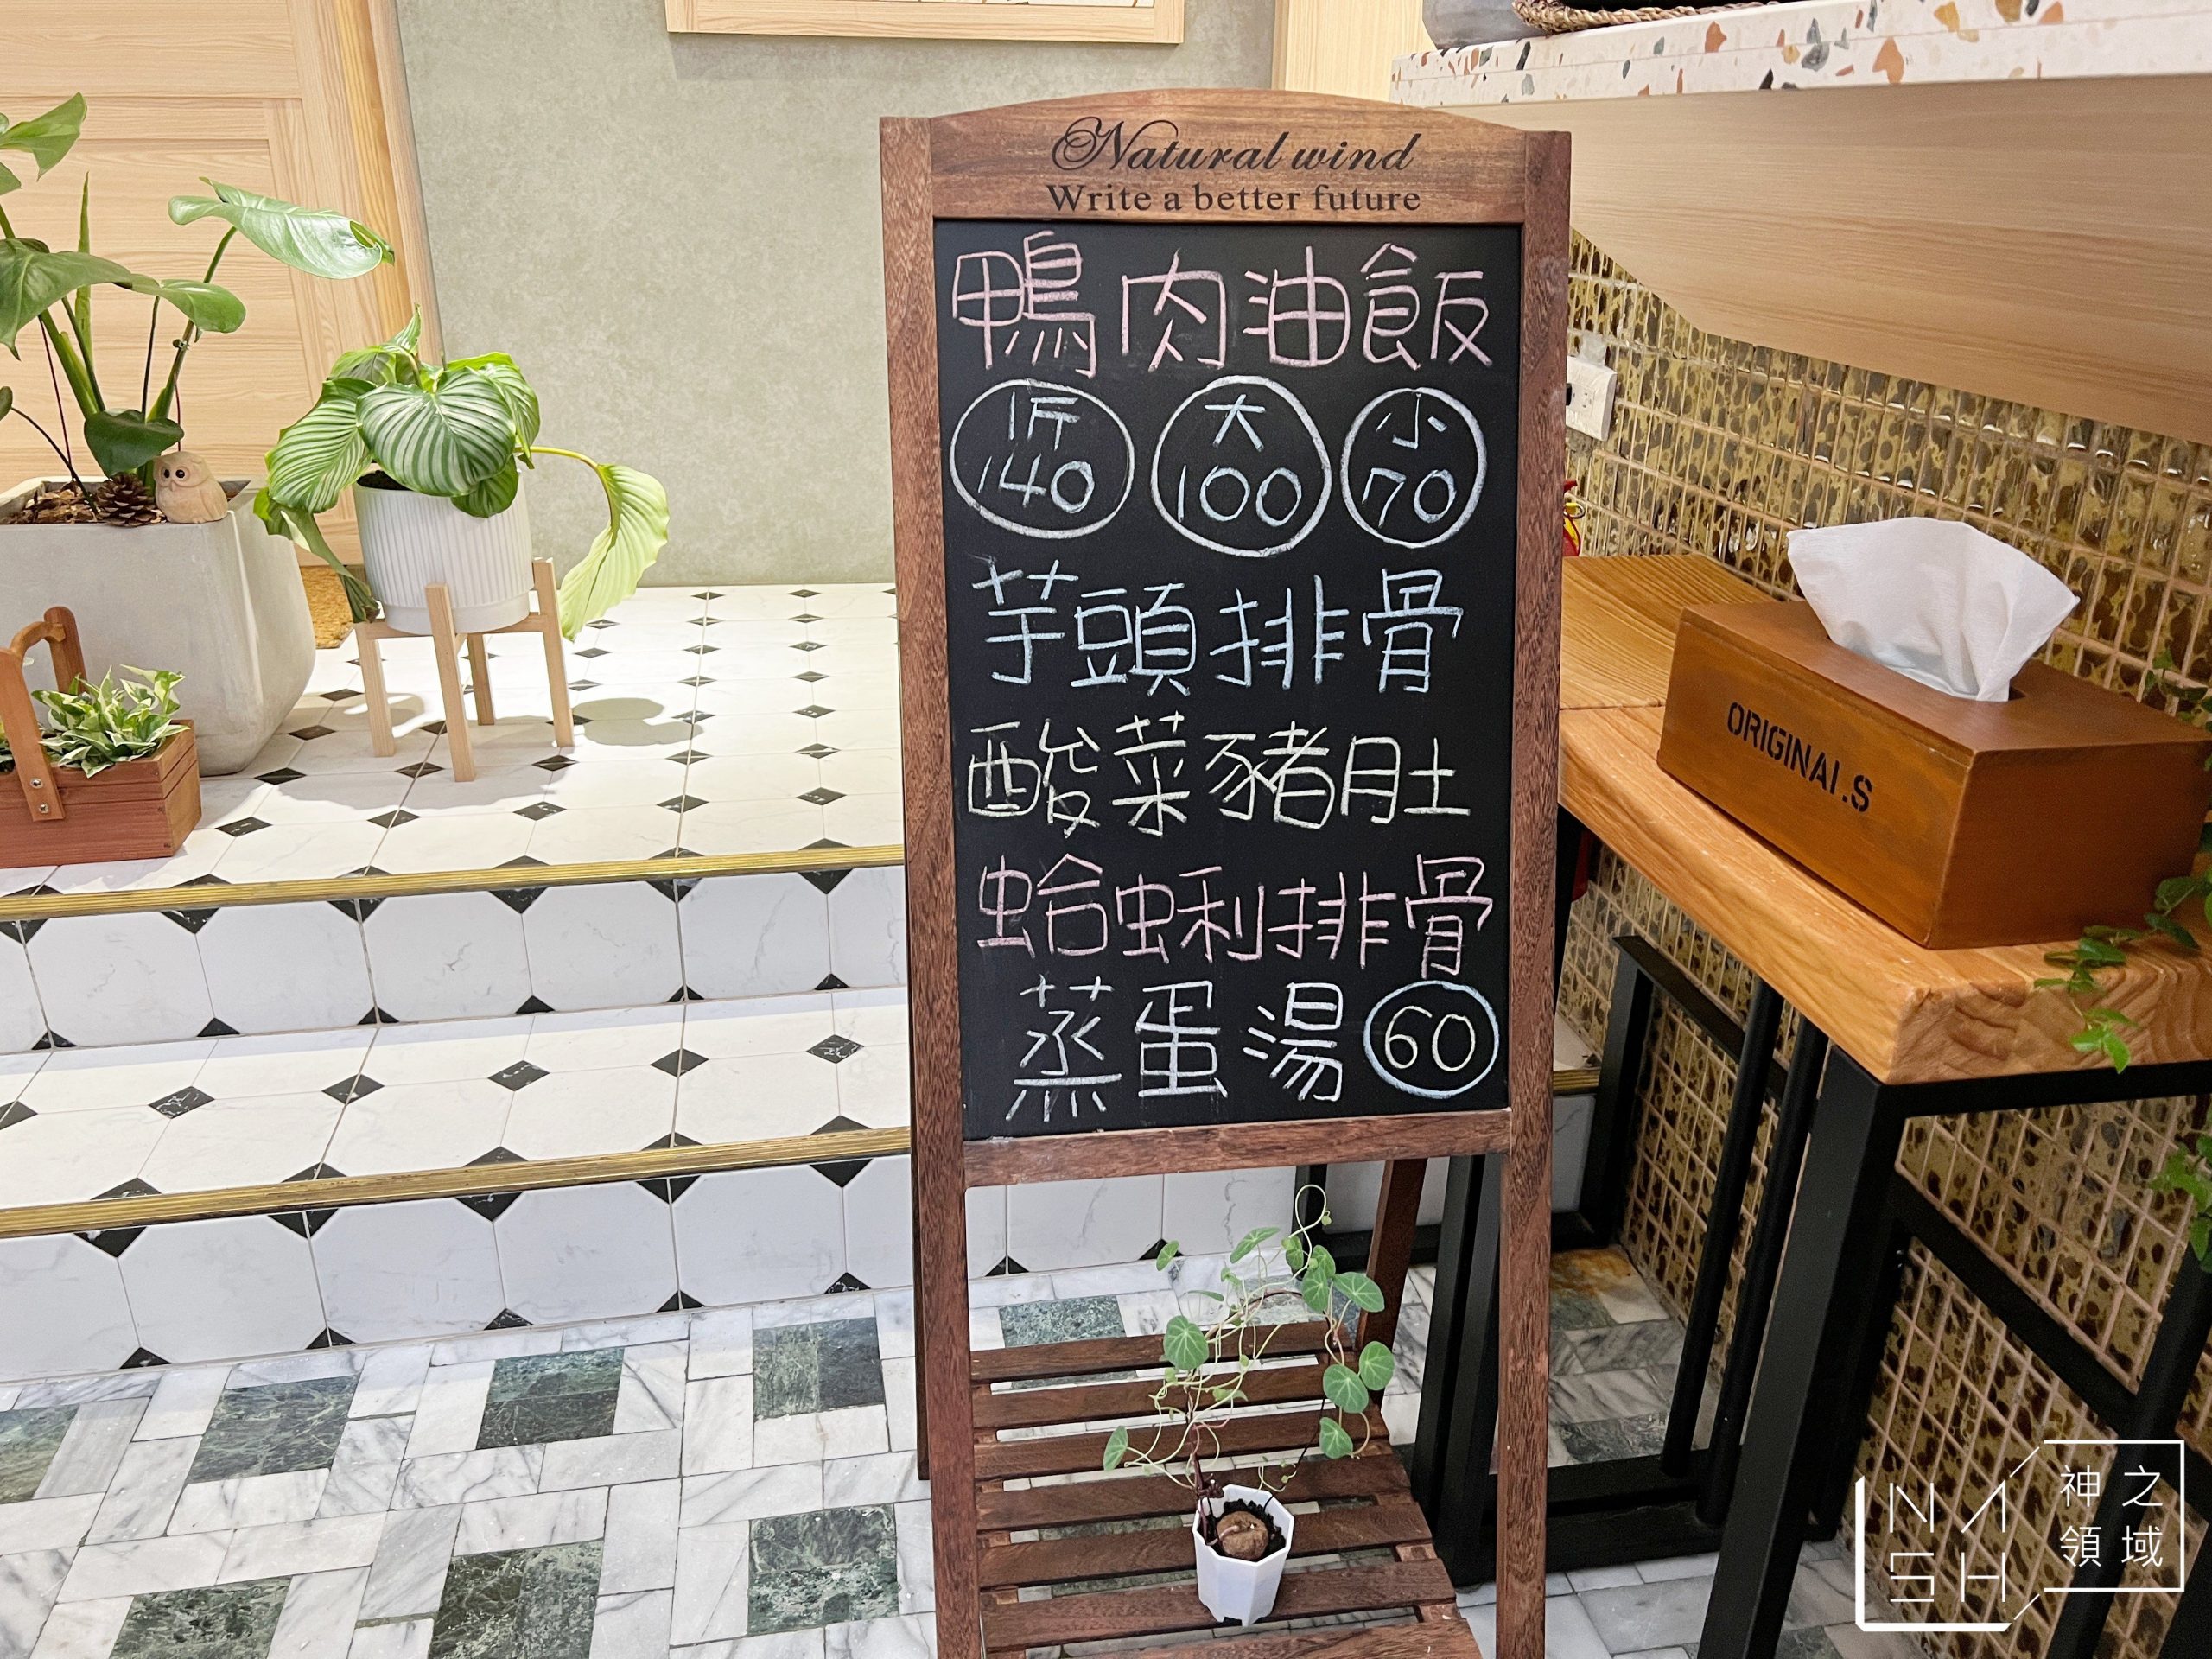 Natural wind
Write a better future
鴨肉油飯
1斤 大 小
140 100 70
芋頭排骨
酸菜豬肚
蛤蜊排骨
蒸蛋湯 60
ORIGINALS
NASH 神之領域